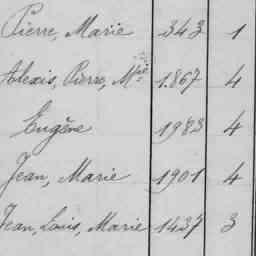 Pierre, Marie 343 1
Alexis, Pierre, Mie 1.867 4
Eugène 1983 4
Jean, Marie 1901 4
Jean, Louis, Marie 1437 3